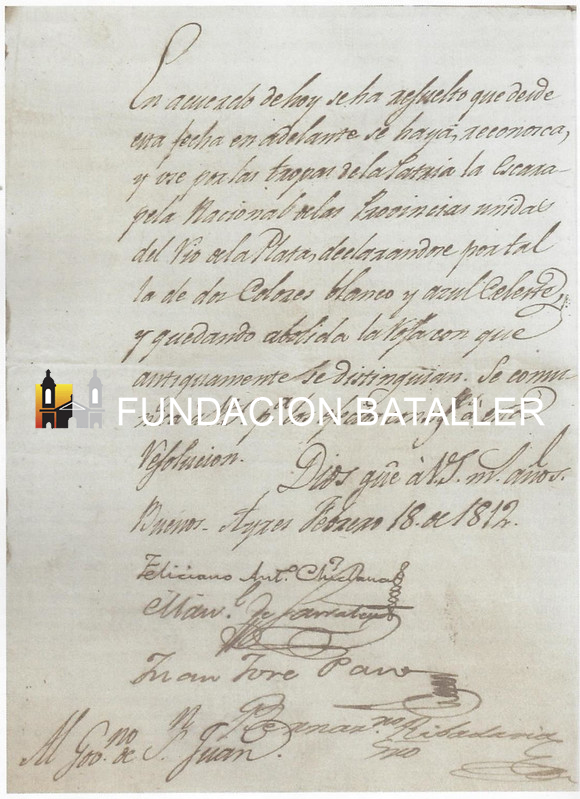 En acuerdo de hoy se ha resuelto que desde
esta fecha en adelante se haya, reconosca,
y use por las tropas de la Patria la Escara
pela Nacional de las Provincias unidas
del Rio de la Plata, declarandose por tal
la de dos Colores blanco y azul Celeste,
y quedando abolida la Roja con que
antiguamente se distinguian. Se comu
FUNDACION BATALLER
Resolucion.
Dios gūe à V.S. m.s años.
Buenos-Ayres Febrero 18. de 1812.
Feliciano Ant.o Chiclana
Man.l de Sarratea
Juan Jose Paso
Bernar.no Ribadavia
Sro
Al Gov.no de S.n Juan.